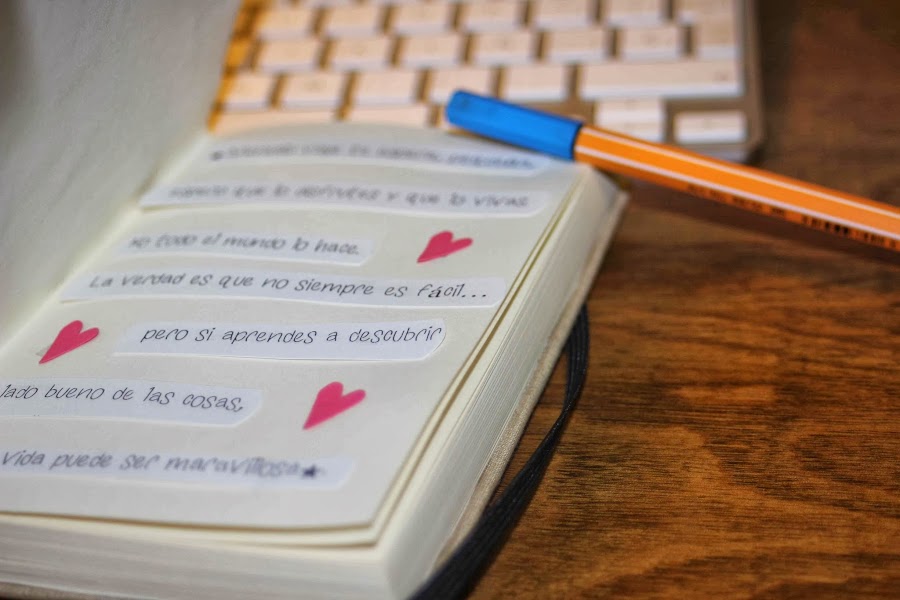 que lo disfrutes y que lo vivas
No todo el mundo lo hace.
La verdad es que no siempre es fácil...
pero si aprendes a descubrir
lado bueno de las cosas,
vida puede ser maravillosa